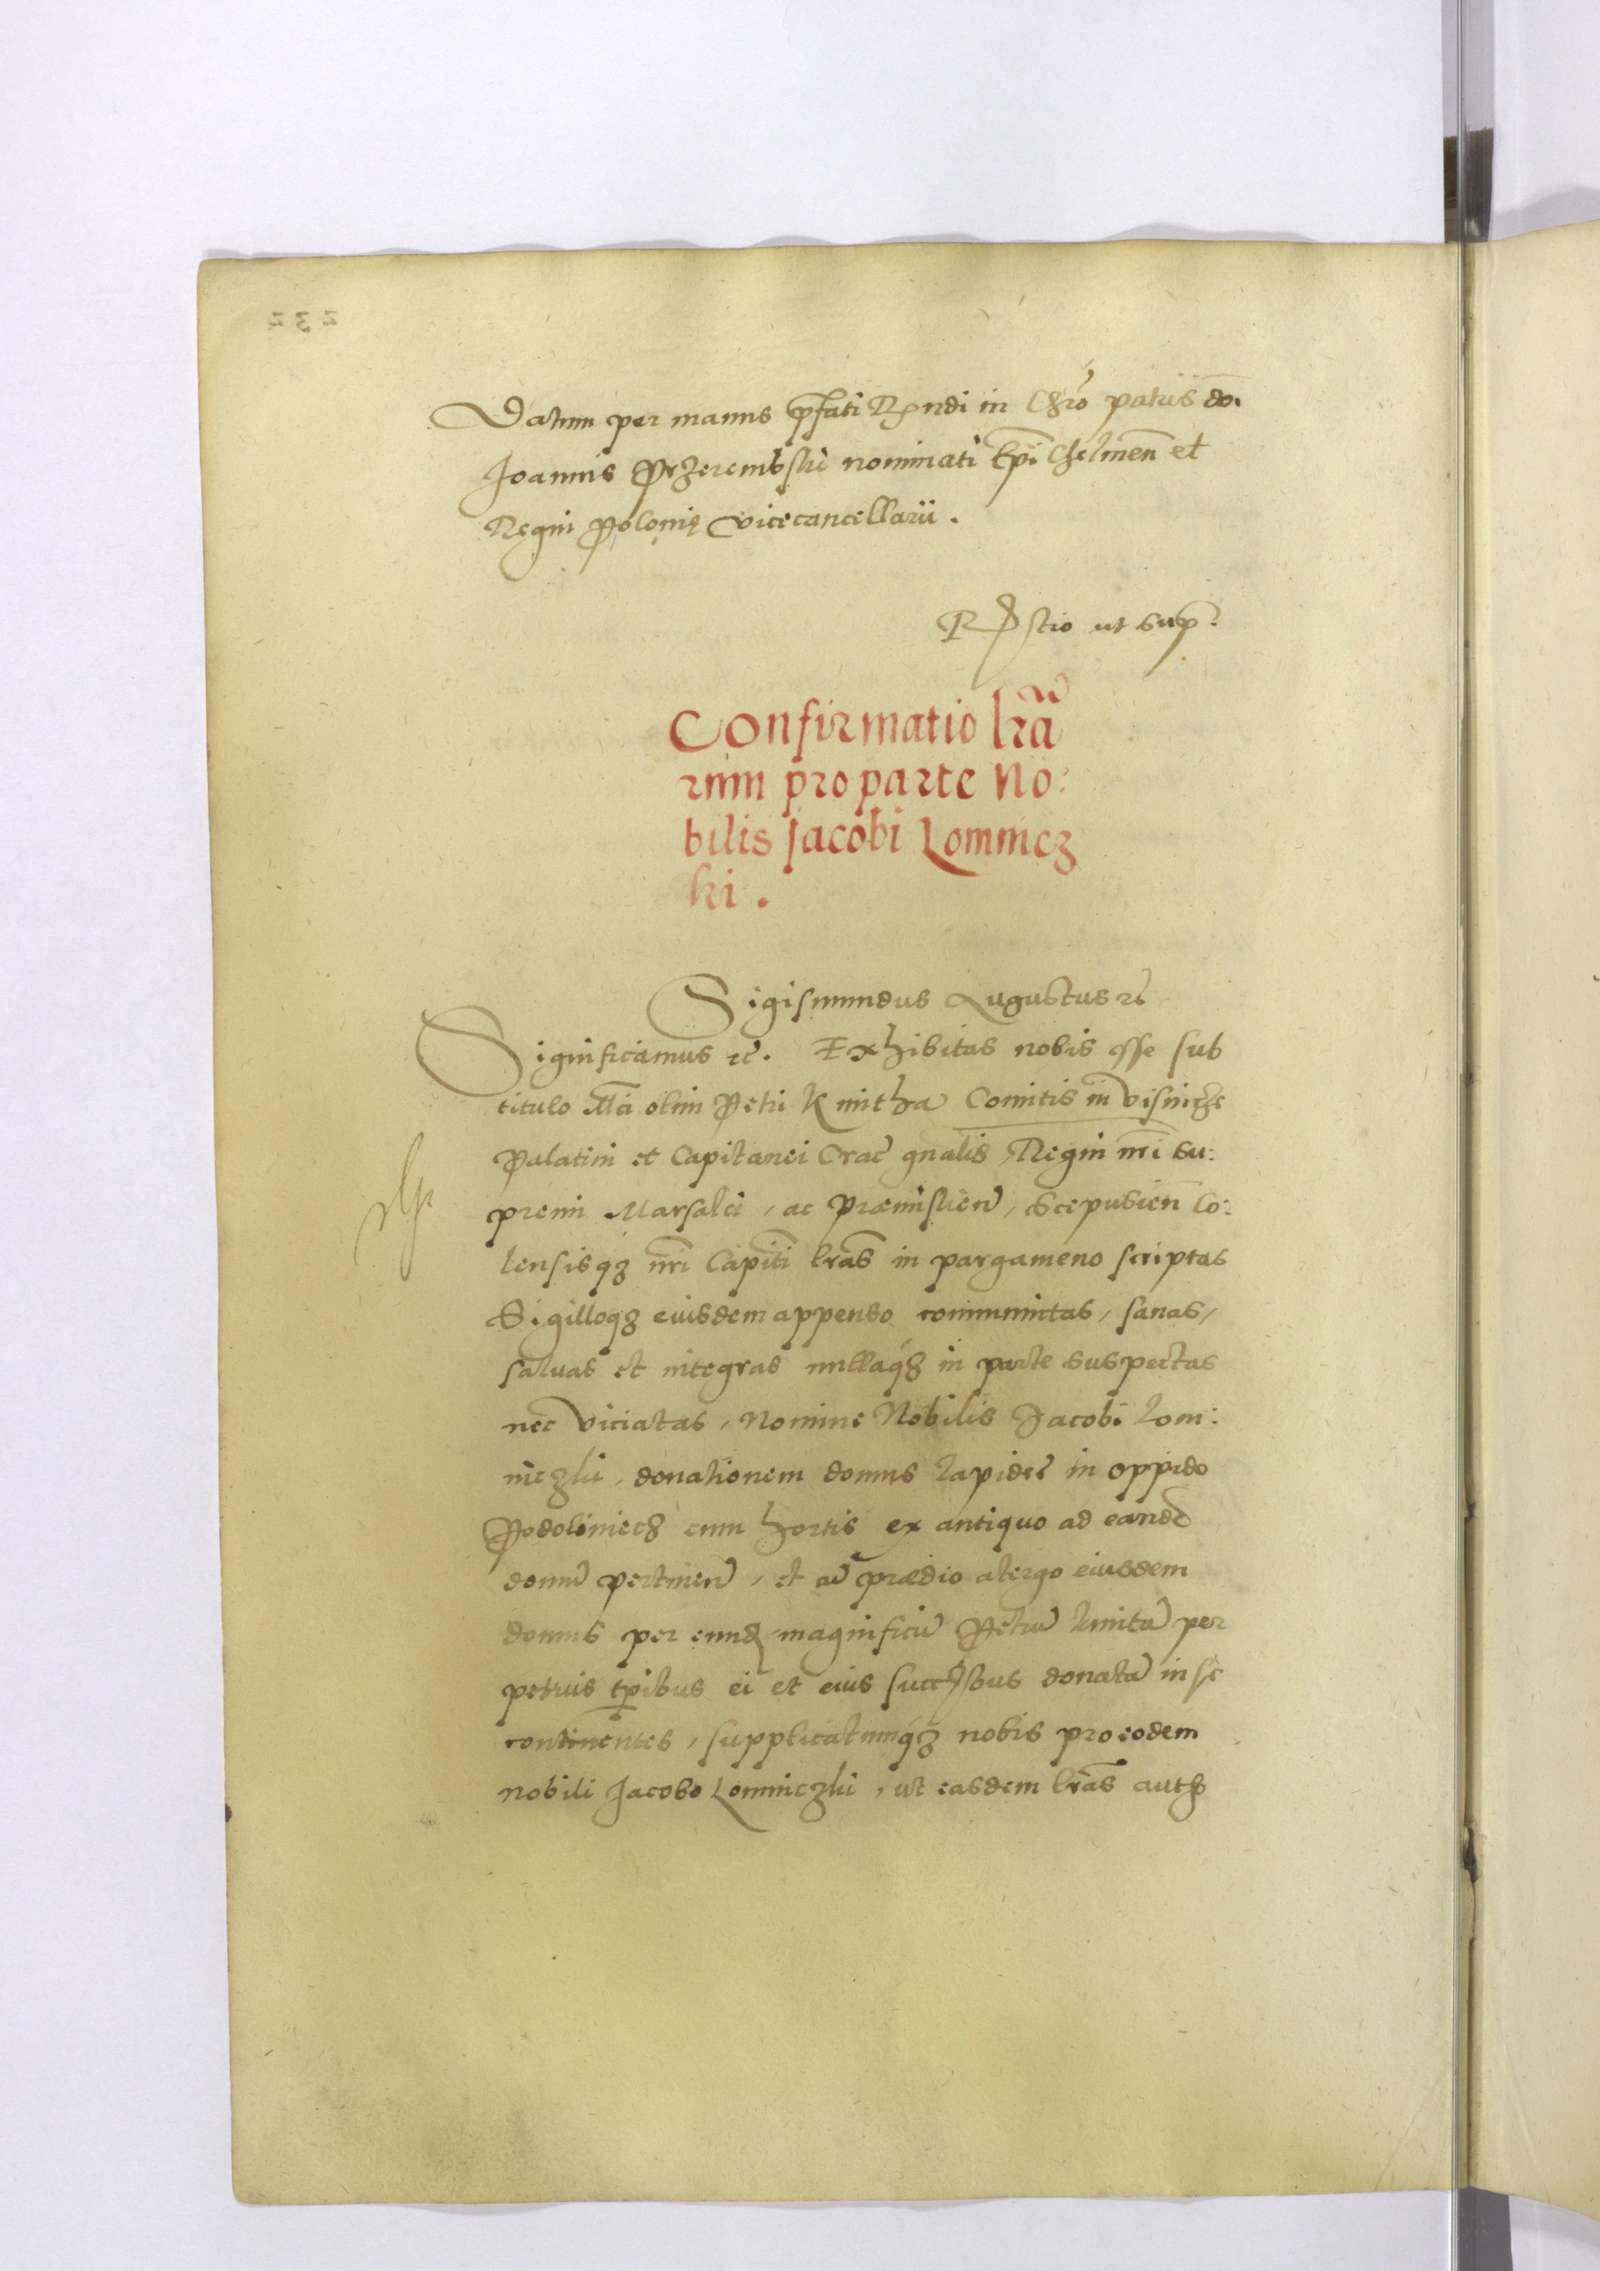 Datum per manus pfati Rndi in Chro patris do.
Joannis Przerembski nominati Epi Chelmen et
Regni Polonię Vicecancellarii.
Rstio ut sup.
Confirmatio lrã
rum pro parte No:
bilis Jacobi Lomnicz
ki.
Sigismundus Augustus rc
Significamus rc. Exhibitas nobis esse sub
titulo Mci olim Petri Kmitha Comitis in Visnicze
Palatini et Capitanei Crac gnalis, Regni nri su:
premi Marsalci, ac Præmislien, Scepusien Co:
lensisqz nri Capiti lras in pargameno scriptas
Sigilloqz eiusdem appenso communitas, sanas,
saluas et integras nullaqz in parte suspectas
nec viciatas, Nomine Nobilis Jacobi Lom:
niczki, donationem domus lapideę in oppido
Podoliniecz cum hortis ex antiquo ad eande
domũ pertinen, et cũ prædio a tergo eiusdem
domus per eund magnificũ Petrũ Kmitã per
petuis tpibus ei et eius succsbus donatã in se
continentes, supplicatumqz nobis pro eodem
nobili Jacobo Lomniczki, ut easdem lras auth